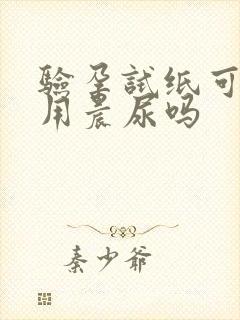 验孕試纸可
用晨尿吗
秦少爺